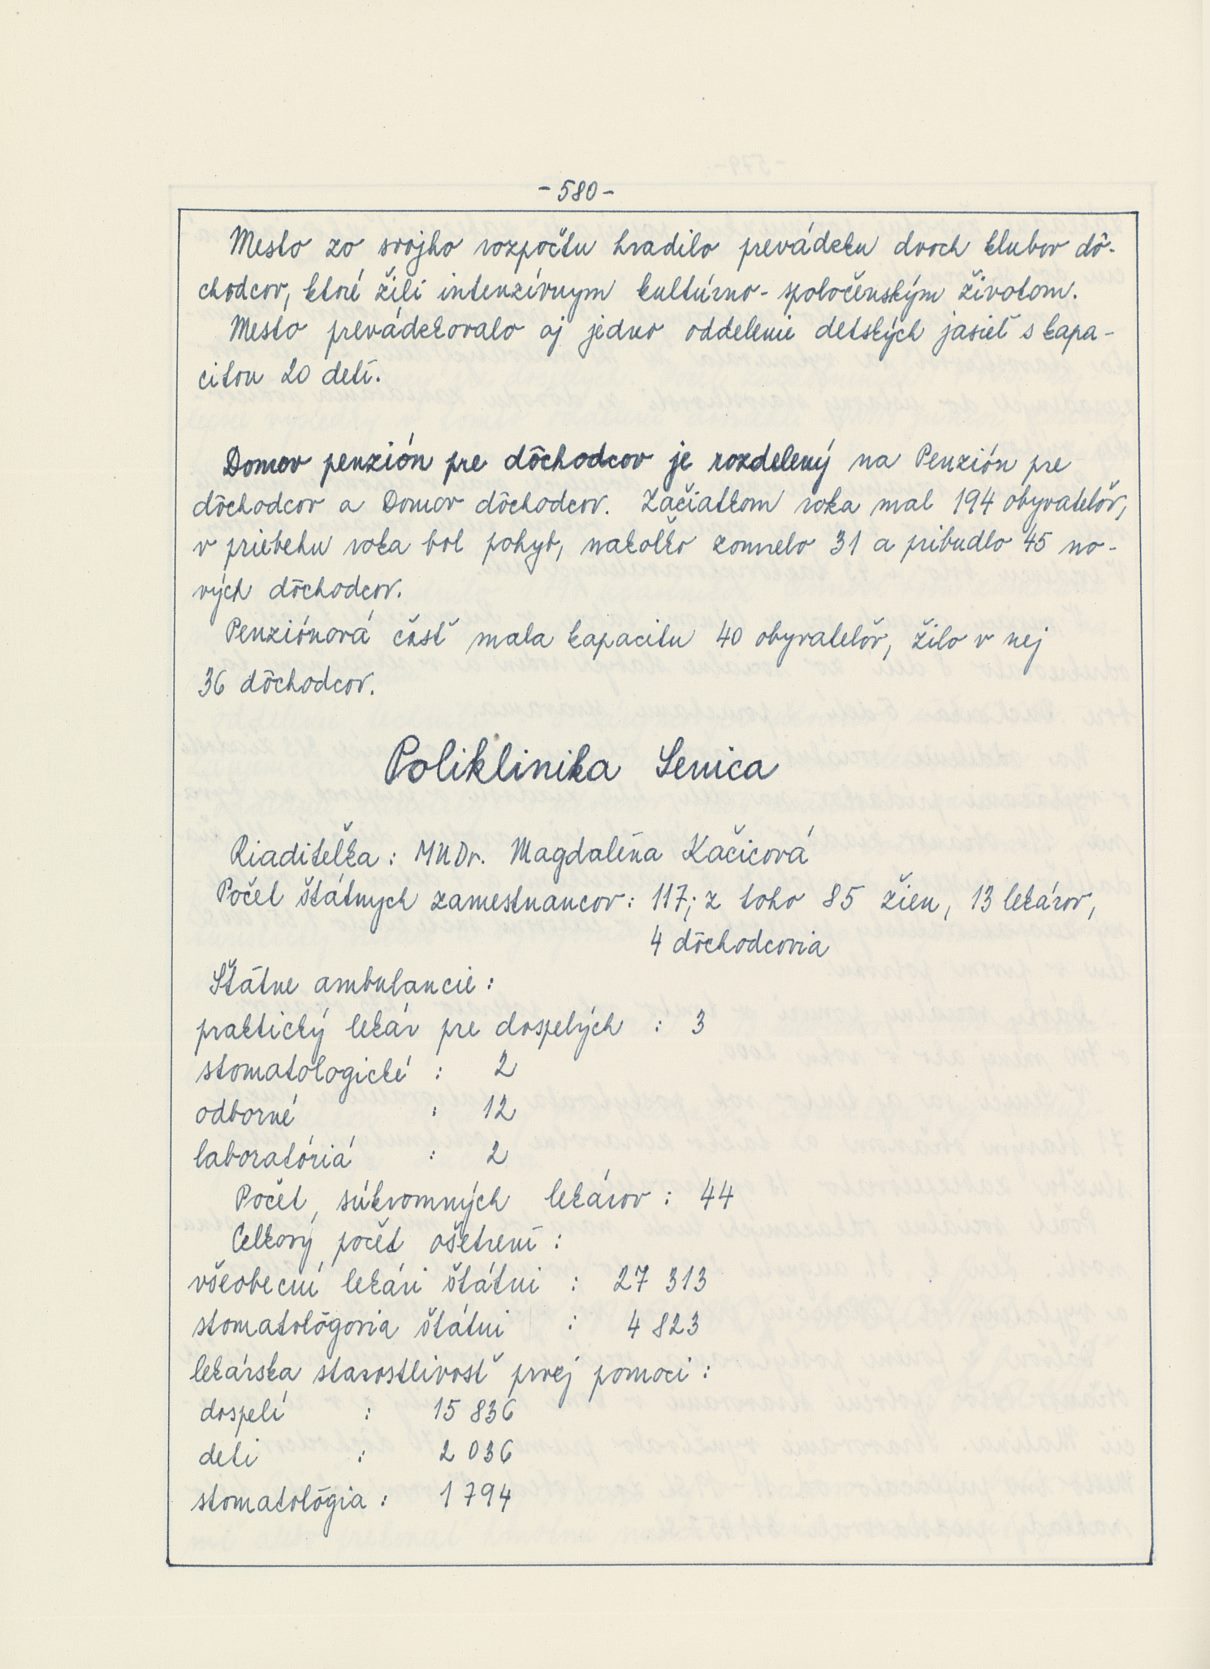 -580-
Mesto zo svojho rozpočtu hradilo prevádzku dvoch klubov dô-
chodcov, ktoré žili intenzívnym kultúrno-spoločenským životom.
Mesto prevádzkovalo aj jedno oddelenie detských jasieľ s kapa-
citou 20 detí.
Domov penzión pre dôchodcov je rozdelený na Penzión pre
dôchodcov a Domov dôchodcov. Začiatkom roka mal 194 obyvateľov,
v priebehu roka bol pohyb, nakoľko zomrelo 31 a pribudlo 45 no-
vých dôchodcov.
Penziónová časť mala kapacitu 40 obyvateľov, žilo v nej
36 dôchodcov.
Poliklinika Senica
Riaditeľka: MUDr. Magdaléna Kačicová
Počet štátnych zamestnancov: 117; z toho 85 žien, 13 lekárov,
4 dôchodcovia
Štátne ambulancie:
praktický lekár pre dospelých : 3
stomatologické : 2
odborné : 12
laboratóriá : 2
Počet súkromných lekárov: 44
Celkový počet ošetrení:
všeobecní lekári štátni : 27 313
stomatológovia štátni : 4 823
lekárska starostlivosť prvej pomoci:
dospelí : 15 836
deti : 2 036
stomatológia : 1 794